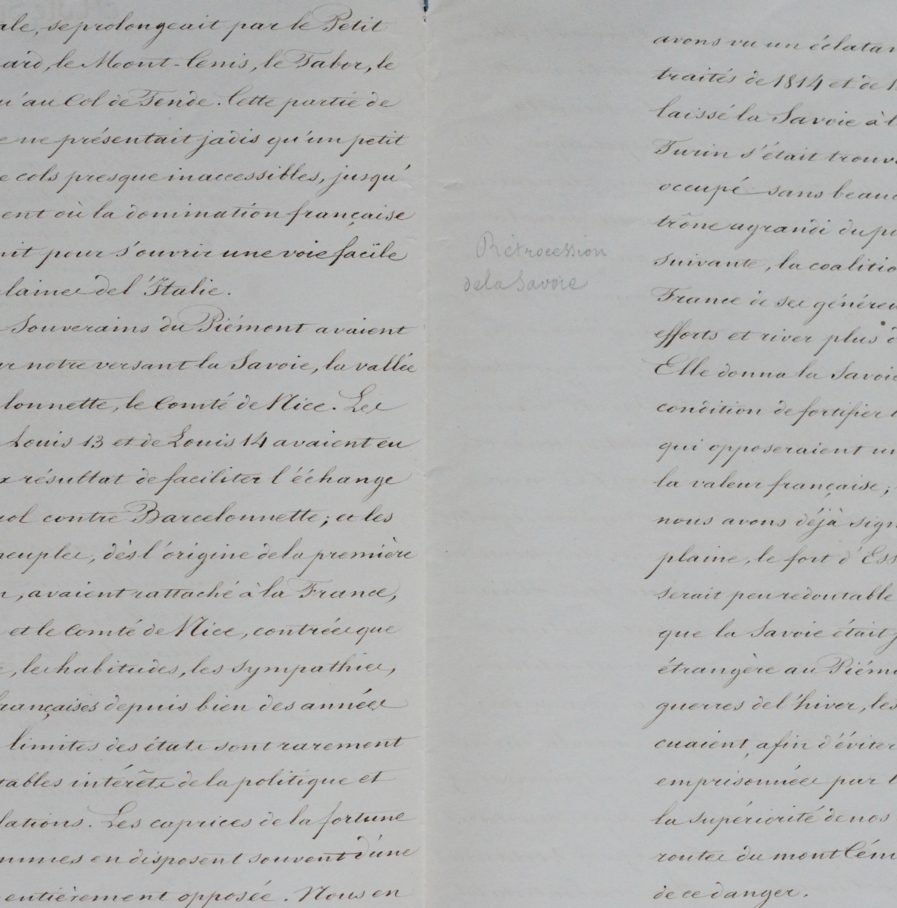 ale, se prolongeait par le Petit
ard, le Mont-Cenis, le Tabor, le
qu'au Col de Tende. Cette partie de
e ne présentait jadis qu'un petit
e cols presque inaccessibles, jusqu'
ent où la domination française
nit pour s'ouvrir une voie facile
laines de l'Italie.
Souverains du Piémont avaient
ur notre versant la Savoie, la vallée
lonnette, le Comté de Nice. Les
Louis 13 et de Louis 14 avaient eu
x résultat de faciliter l'échange
rol contre Barcelonnette; et les
peuples, dès l'origine de la première
n, avaient rattaché à la France,
et le Comté de Nice, contrées que
e, les habitudes, les sympathies,
françaises depuis bien des années
limites des états sont rarement
tables intérêts de la politique et
lations. Les caprices de la fortune
ommes en disposent souvent d'une
entièrement opposée. Nous en
Rétrocession
de la Savoie
avons vu un éclatan
traités de 1814 et de 1
laissé la Savoie à l
Turin s'était trouv
occupé sans beauc
trône agrandi du p
suivante, la coalitio
France de ses généreu
efforts et river plus é
Elle donna la Savoie
condition de fortifier l
qui opposeraient un
la valeur française;
nous avons déjà sign
plaine, le fort d'Ess
serait peu redoutable
que la Savoie était j
étrangère au Piémo
guerres de l'hiver, les
cuaient, afin d'éviter
emprisonnées par l
la supériorité de nos
routes du mont Céni
de ce danger.